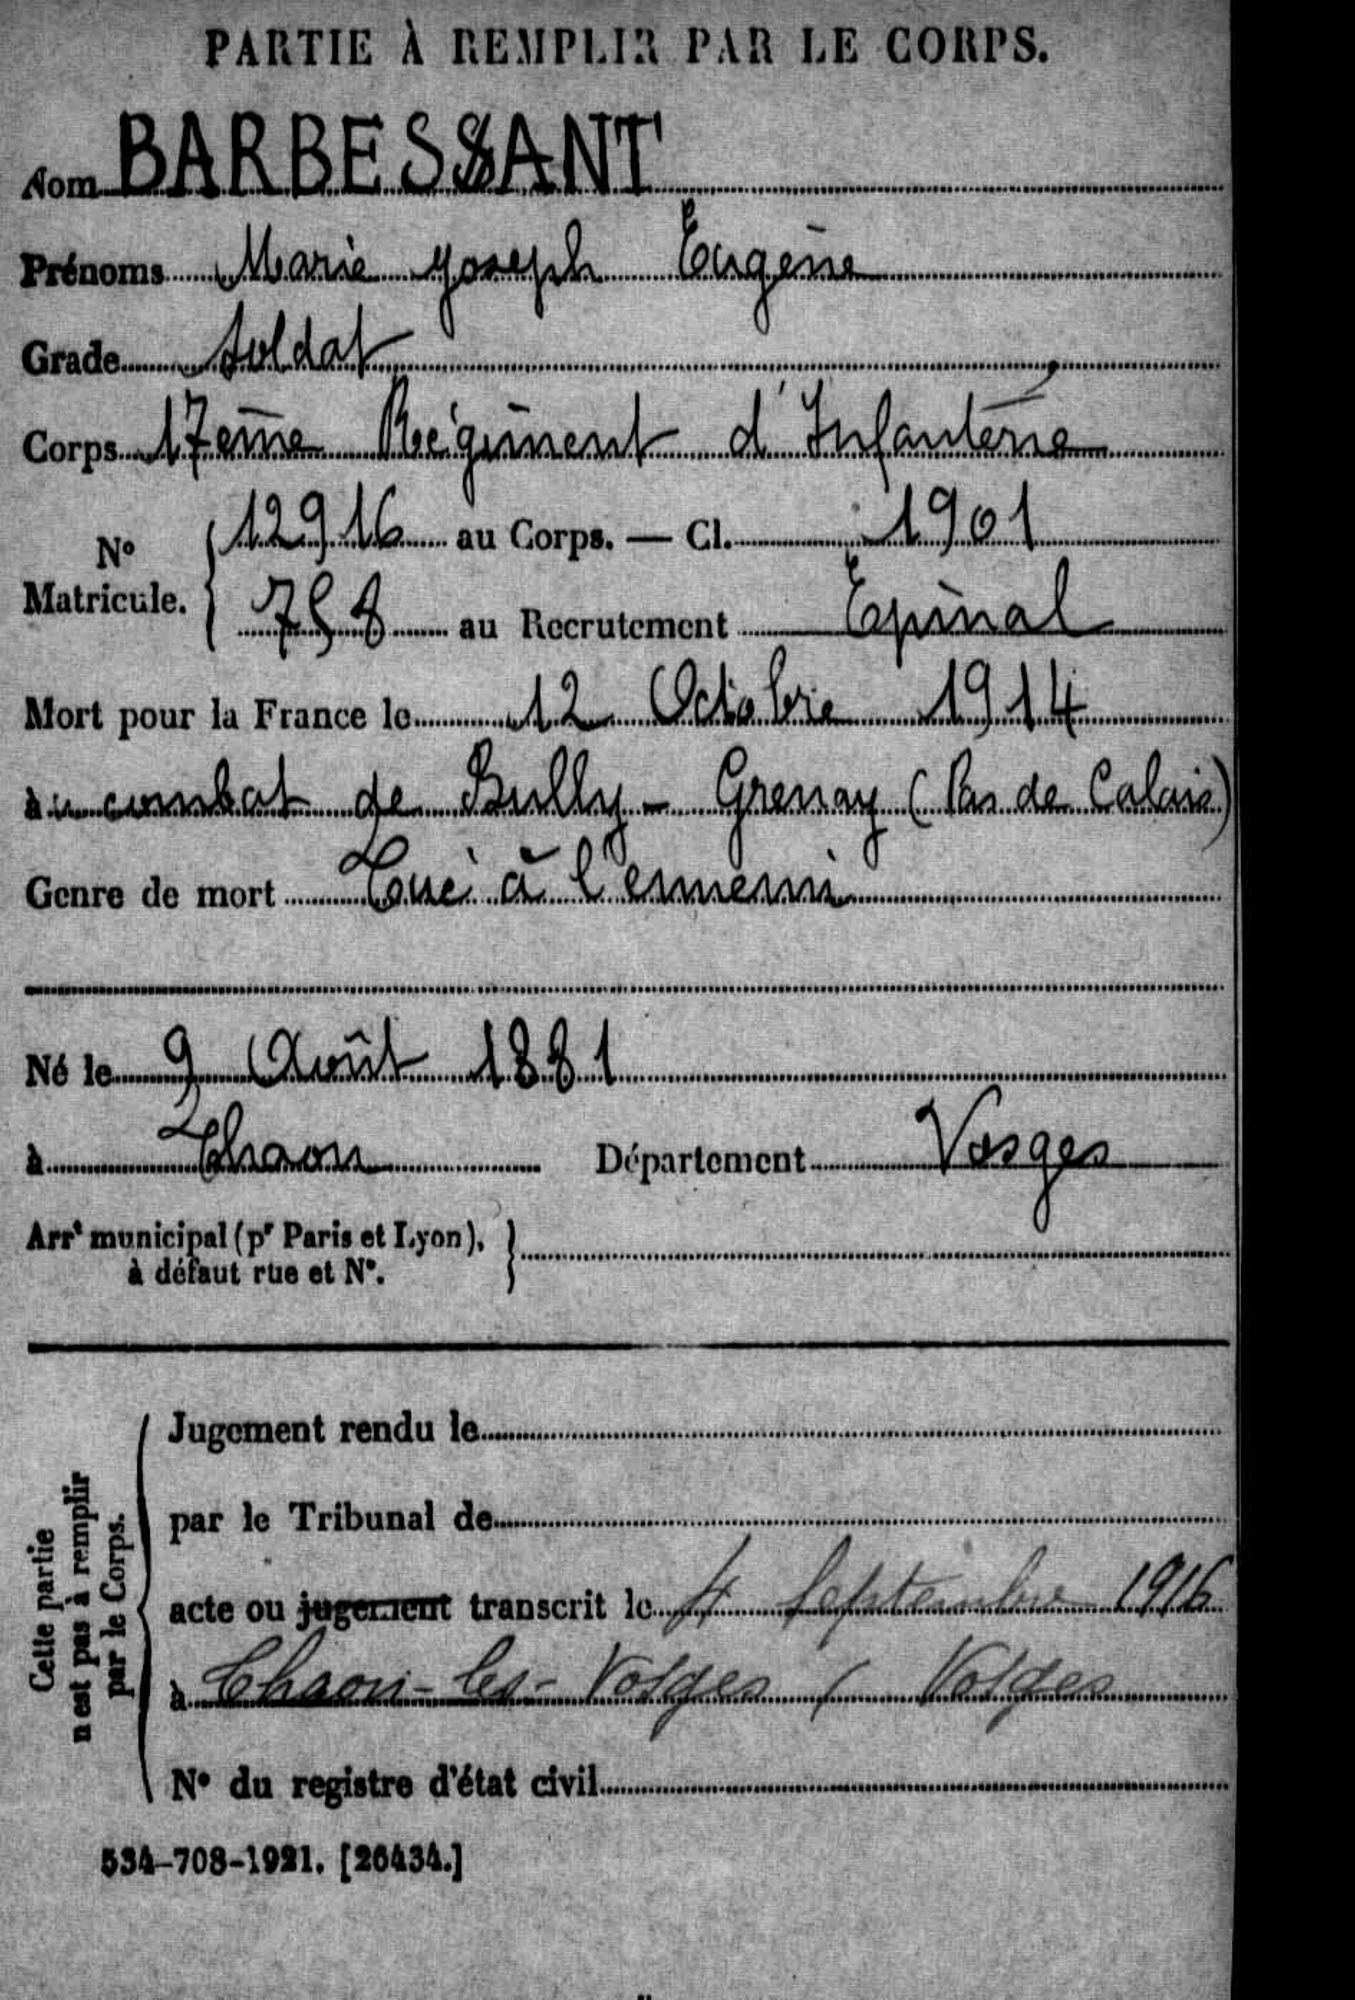 PARTIE À REMPLIR PAR LE CORPS.
Nom BARBESSANT
Prénoms Marie Joseph Eugène
Grade Soldat
Corps 17ème Régiment d'Infanterie
N° Matricule. { 12916 au Corps. — Cl. 1901
758 au Recrutement Epinal
Mort pour la France le 12 Octobre 1914
au combat de Bully-Grenay (Pas de Calais)
Genre de mort Tué à l'ennemi
Né le 9 Août 1881
à Thaon Département Vosges
Arrt municipal (pr Paris et Lyon), }
à défaut rue et N°.
Cette partie
n'est pas à remplir
par le Corps.
Jugement rendu le
par le Tribunal de
acte ou jugement transcrit le 4 Septembre 1916
à Thaon-les-Vosges ( Vosges
N° du registre d'état civil
534-708-1921. [26434.]